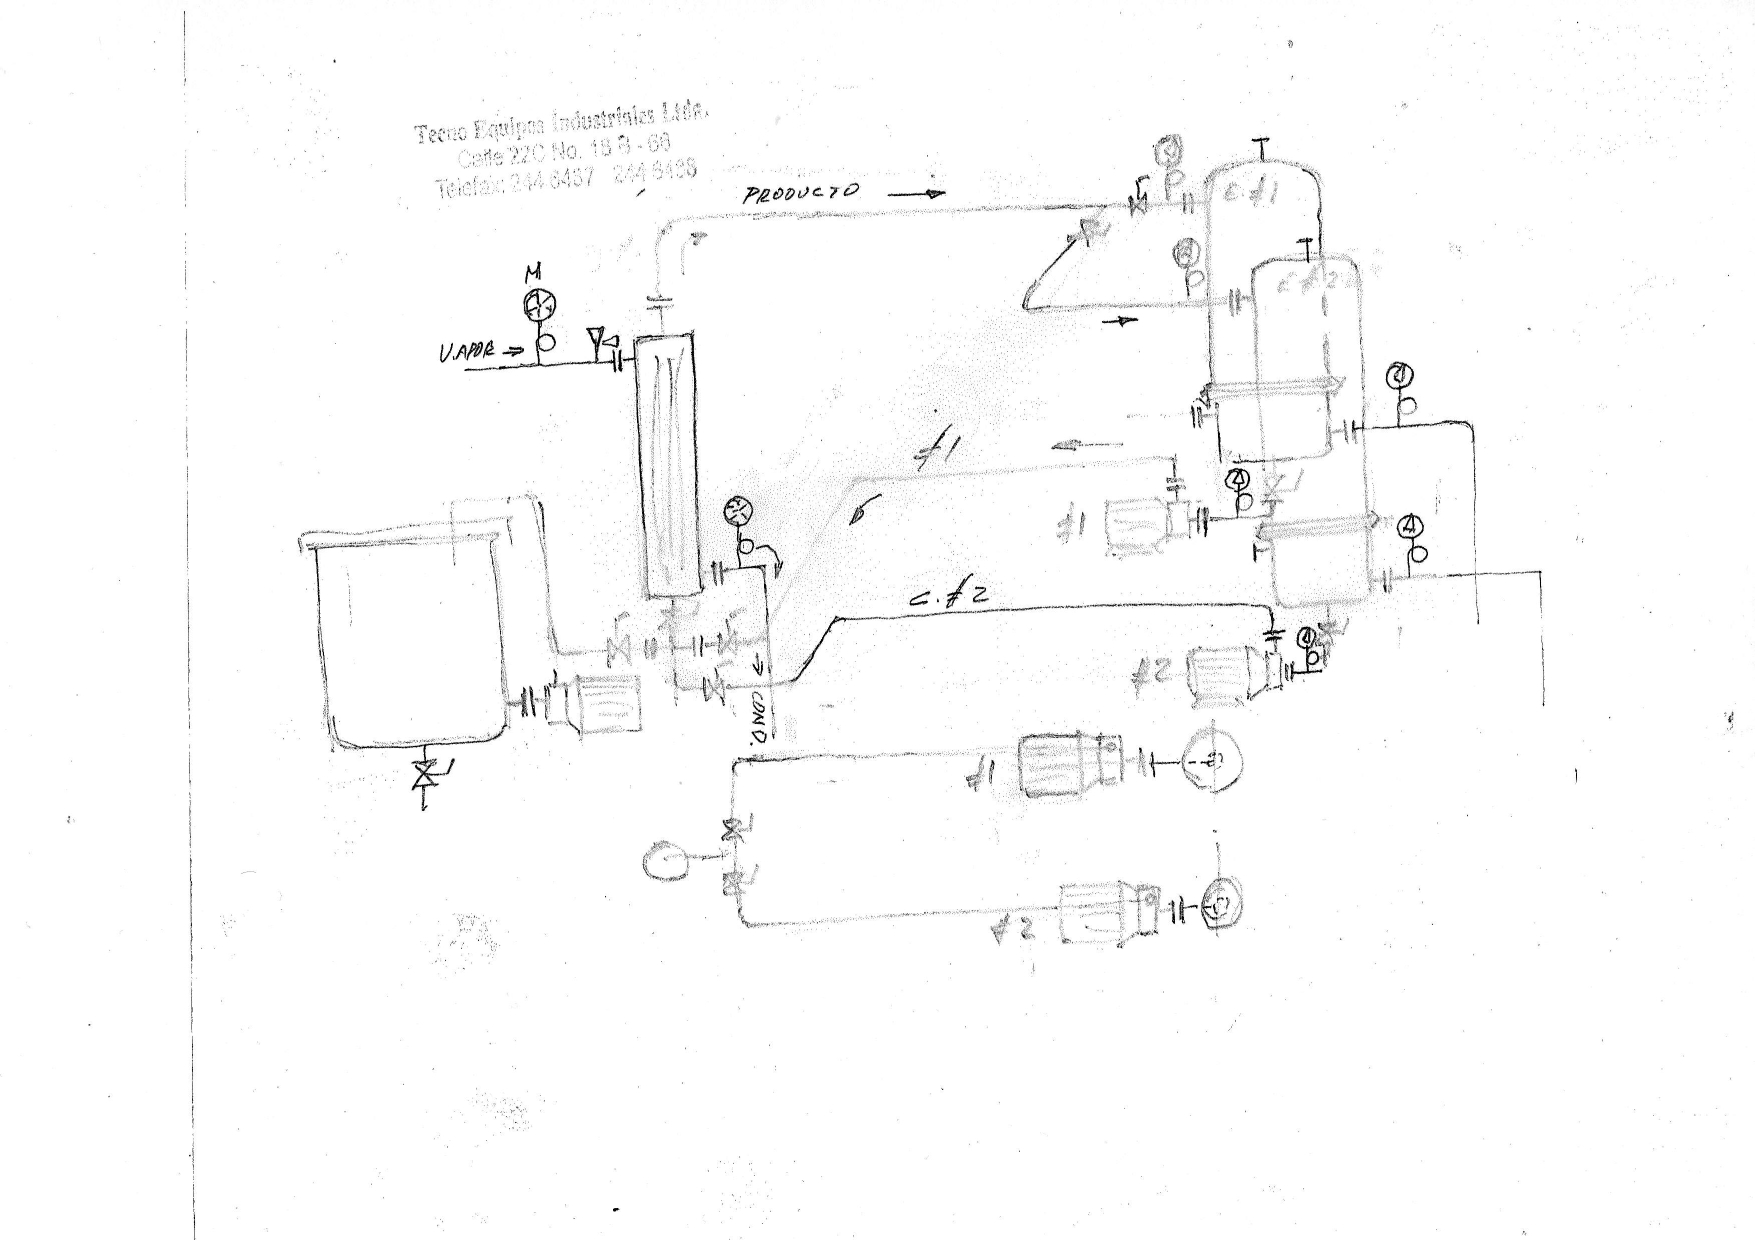 Tecno Equipos Industriales Ltda.
Calle 22C No. 18 B - 66
Telefax: 244 6437 244 6438
PRODUCTO
C.#1
M
VAPOR
P
P
C.#2
#1
#1
C.#2
#2
COND.
#1
#2